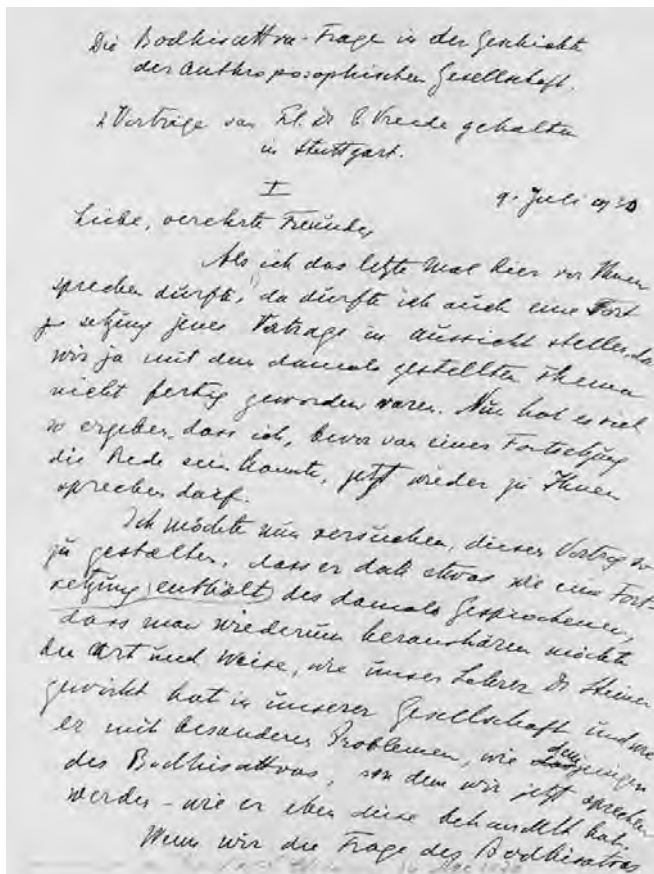 Die Bodhisattva-Frage in der Geschichte
der Anthroposophischen Gesellschaft.
2 Vorträge von Frl. Dr. E. Vreede gehalten
in Stuttgart.
I
9. Juli 1930
Liebe, verehrte Freunde,
Als ich das letzte Mal hier vor Ihnen
sprechen durfte, da durfte ich auch eine Fort
setzung jenes Vortrags in Aussicht stellen, da
wir ja mit dem damals gestellten Thema
nicht fertig geworden waren. Nun hat es sich
so ergeben, dass ich, bevor von einer Fortsetzung
die Rede sein konnte, jetzt wieder zu Ihnen
sprechen darf.
Ich möchte nun versuchen, diesen Vortrag so
zu gestalten, dass er doch etwas wie eine Fort-
setzung enthält des damals Gesprochenen,
dass man wiederum heraushören möchte
die Art und Weise, wie unser Lehrer Dr. Steiner
gewirkt hat in unserer Gesellschaft und wie
er mit besonderen Problemen, wie demjenigen
des Bodhisattvas, von dem wir jetzt sprechen
werden - wie er eben diese behandelt hat.
Wenn wir die Frage des Bodhisatvas